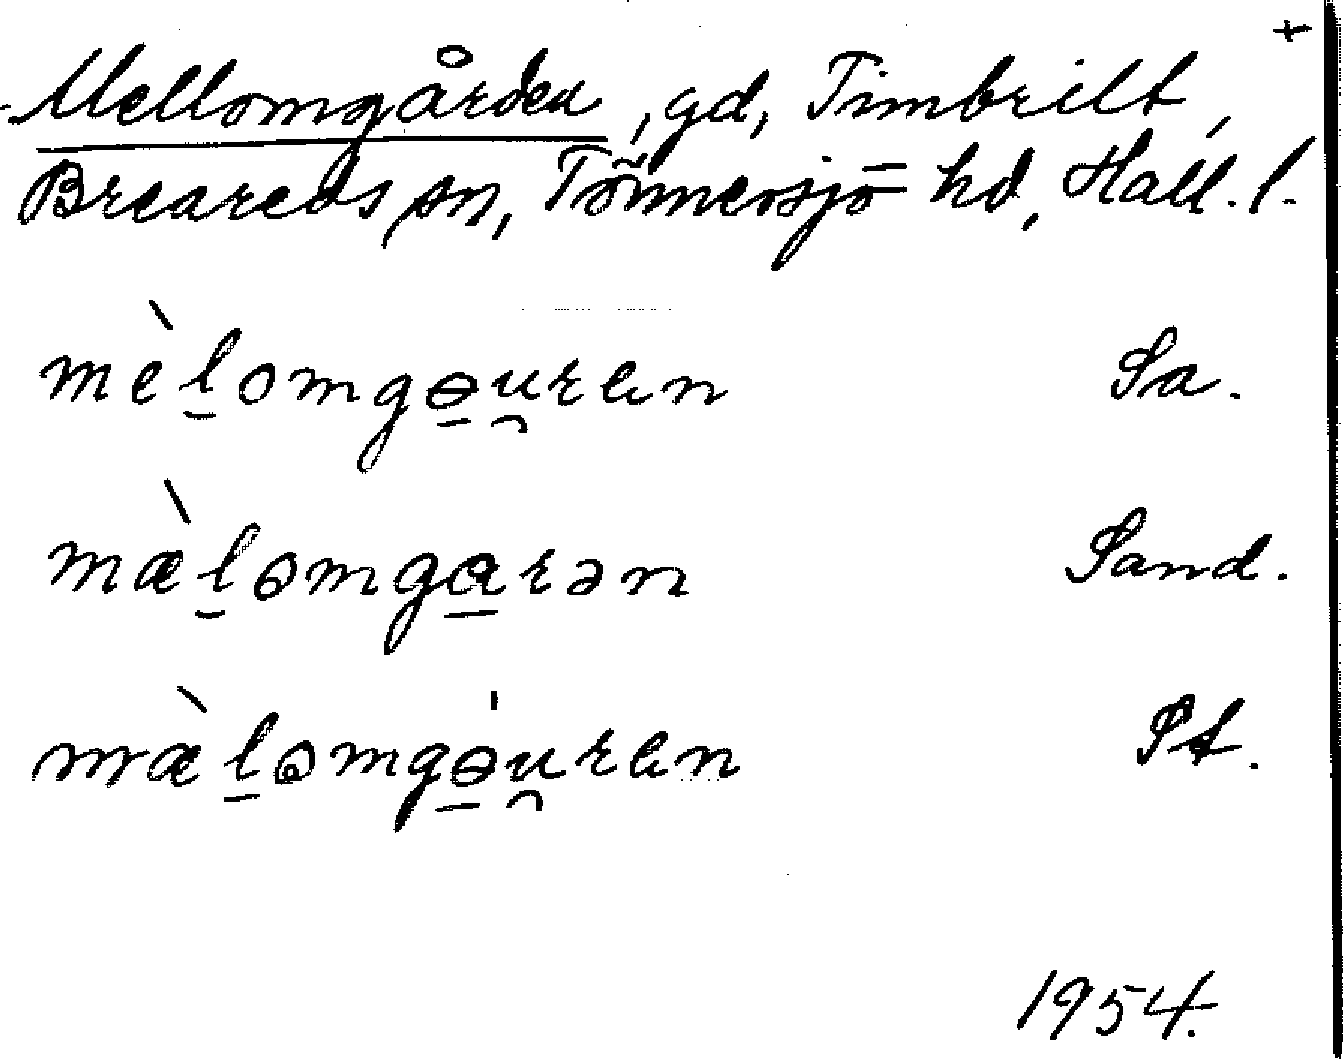 +
Mellomgården, gd, Timbrilt,
Breareds sn, Tönnersjö hd, Hall. l.
mèl̠omgɵ̠u̯ren Sa.
mæ̀l̠ɵmga̠rən Sand.
mæ̀l̠ɵmgɵ̠́u̯ren St.
1954.